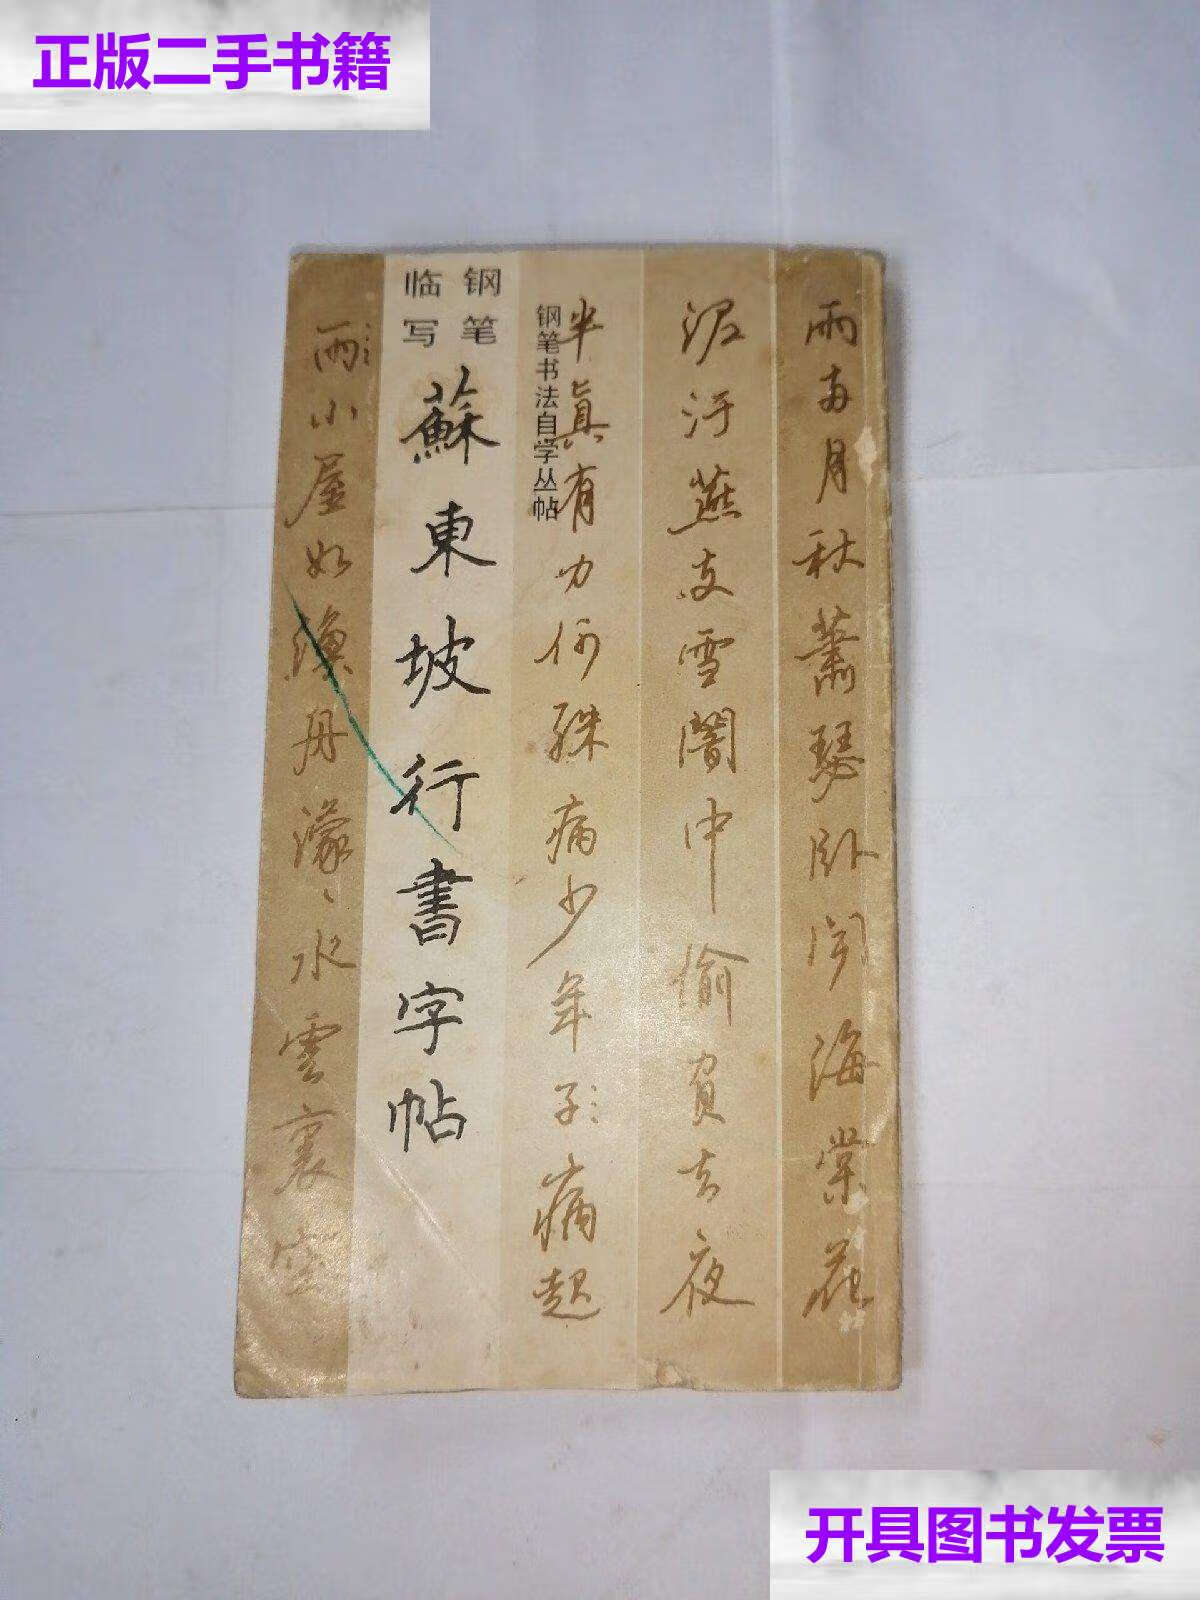 正版二手书籍
雨两月秋萧瑟卧闻海棠花
泥汙燕支雪闇中偷負去夜
半真有力何殊病少年子病起
钢笔书法自学丛帖
钢笔
临写
蘇東坡行書字帖
雨小屋如漁舟濛水雲裏空
开具图书发票